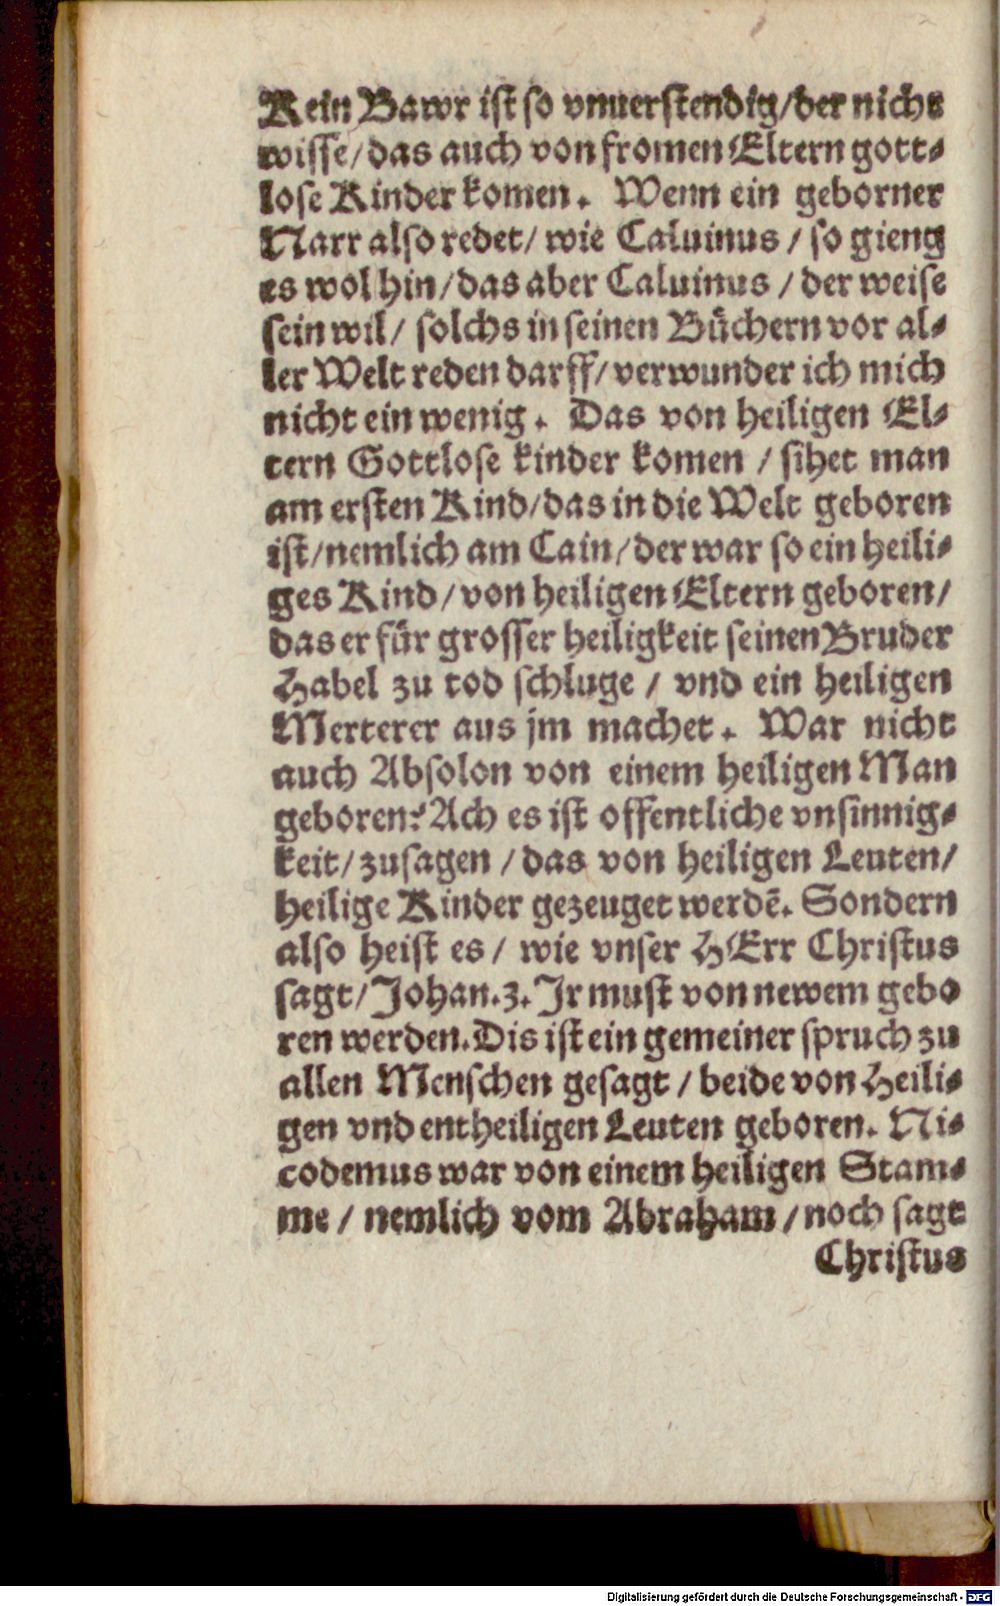 Kein Bawr ist so vnuerstendig/der nicht
wisse/das auch von fromen Eltern gott-
lose Kinder komen. Wenn ein geborner
Narr also redet/ wie Caluinus / so gieng
es wol hin/das aber Caluinus / der weise
sein wil/ solchs in seinen Bůchern vor al-
ler Welt reden darff/verwunder ich mich
nicht ein wenig. Das von heiligen El-
tern Gottlose kinder komen / sihet man
am ersten Kind/das in die Welt geboren
ist/nemlich am Cain/der war so ein heili-
ges Kind/von heiligen Eltern geboren/
das er fůr grosser heiligkeit seinen Bruder
Habel zu tod schluge / vnd ein heiligen
Merterer aus jm machet. War nicht
auch Absolon von einem heiligen Man
geboren? Ach es ist offentliche vnsinnig-
keit/zusagen /das von heiligen Leuten/
heilige Kinder gezeuget werdē. Sondern
also heist es/ wie vnser HErr Christus
sagt/Johan.3. Jr must von newem gebo
ren werden. Dis ist ein gemeiner spruch zu
allen Menschen gesagt /beide von Heili-
gen vnd entheiligen Leuten geboren. Ni-
codemus war von einem heiligen Stam-
me / nemlich vom Abraham /noch sagt
Christus
Digitalisierung gefördert durch die Deutsche Forschungsgemeinschaft - DFG